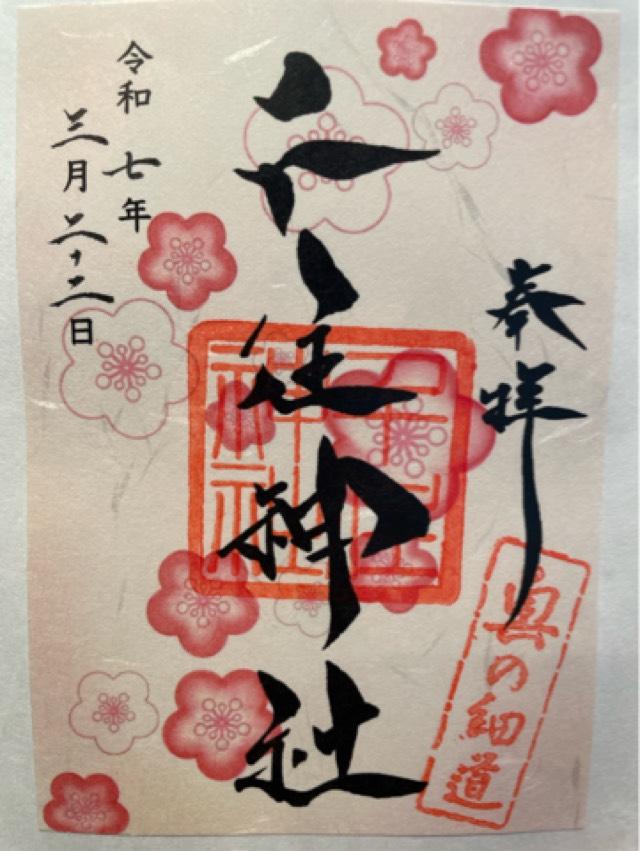 奉拝
奥の細道
千住神社
千住
神社
令和七年
三月二十二日